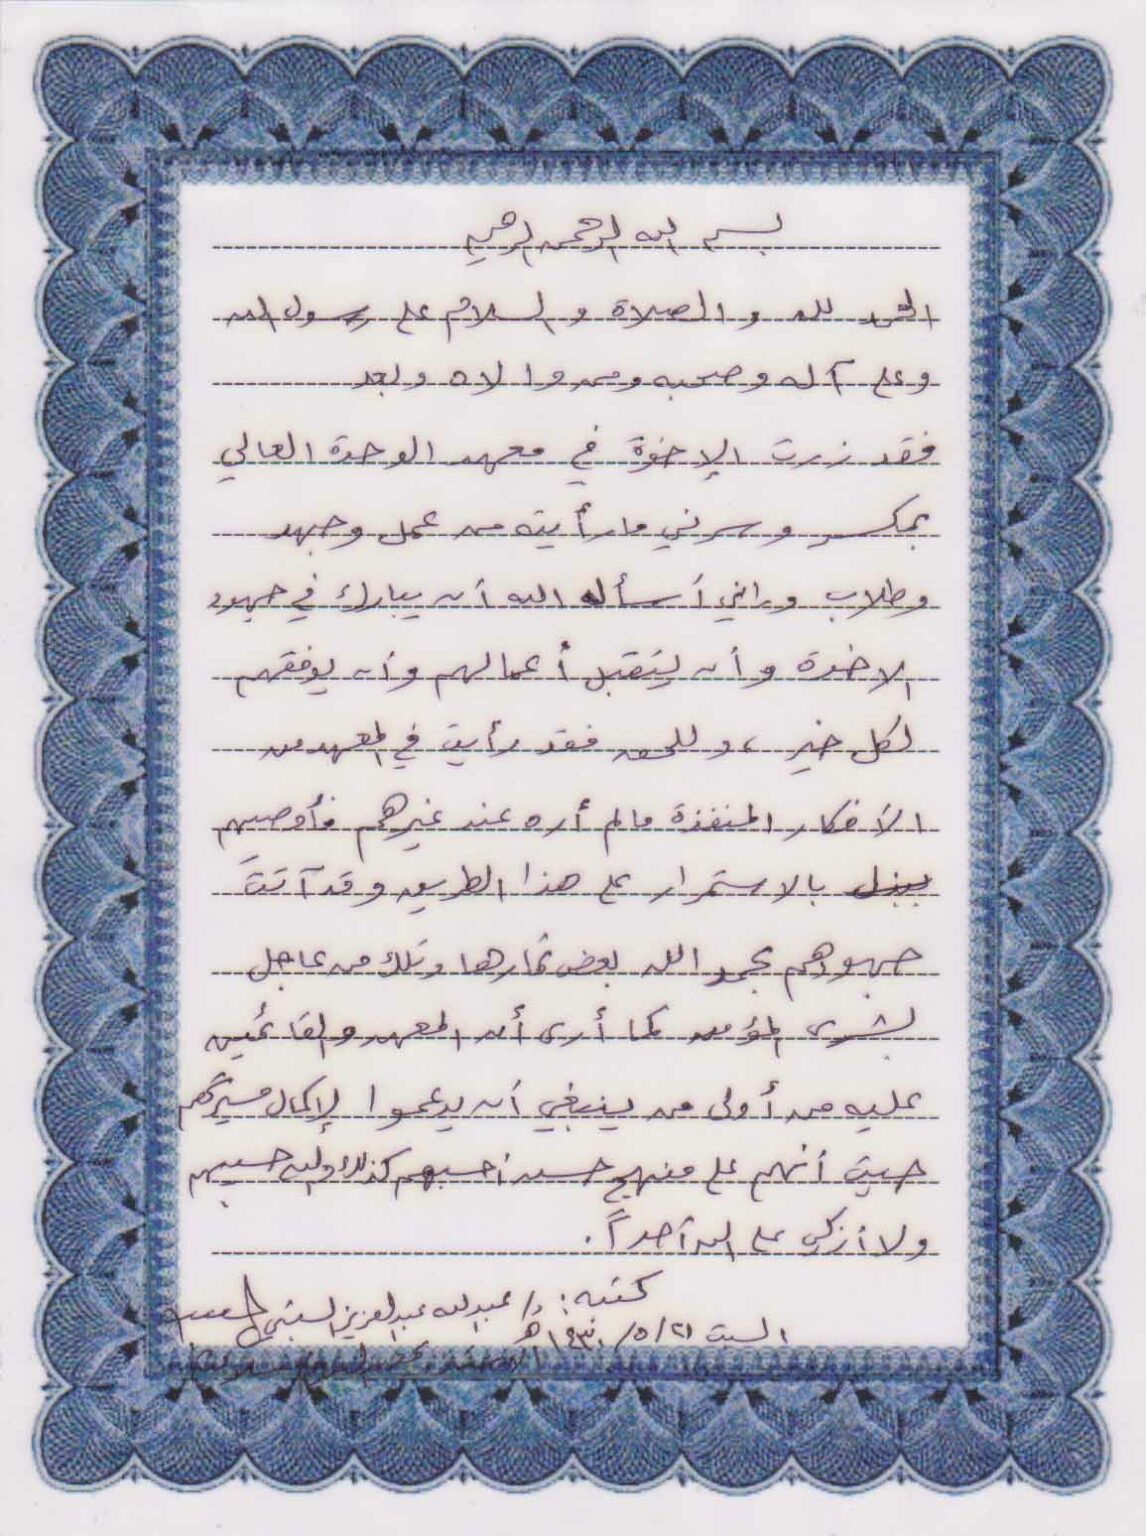 بسم الله الرحمن الرحيم
الحمد لله والصلاة والسلام على رسول الله
وعلى آله وصحبه ومن والاه وبعد
فقد زرت الإخوة في معهد الوحدة العالي
بمكسر وسرني ما رأيته من عمل وجهد
وطلاب وإنني أسأل الله أن يبارك في جهود
الاخوة وأن يتقبل أعمالهم وأن يوفقهم
لكل خير، وللحق فقد رأيت في المعهد من
الأفكار المنفذة ما لم أره عند غيرهم فأوصيهم
بالاستمرار على هذا الطريق وقد آتت
جهودهم بحمد الله بعض ثمارها وتلك من عاجل
بشرى المؤمن كما أرى أن المعهد والقائمين
عليه من أولى من ينبغي أن يدعموا لإكمال مسيرتهم
حيث أنهم على منهج حسن أحسبهم كذلك والله حسيبهم
ولا أزكي على الله أحداً.
كتبه: د/ عبدالله عبدالعزيز
السبت ٢١/٥/١٤٣٠هـ